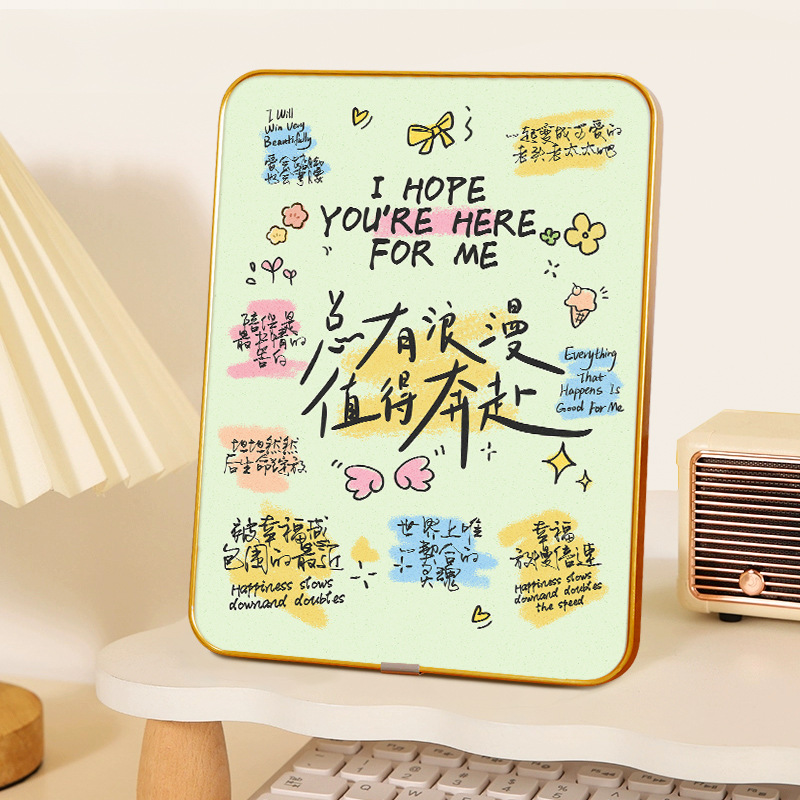 I Will
Win Very
Beautifully
爱会
也会
一起变成可爱的
老头老太太吧
I HOPE
YOU'RE HERE
FOR ME
总有浪漫
值得奔赴
陪伴是
最长情的
告白
Everything
That
Happens Is
Good For Me
坦坦然然
后生命绽放
被幸福感
包围的最近
Happiness slows
downand doubles
世界上唯
一契合的
灵魂
幸福
放慢倍速
Happiness slows
downand doubles
the speed